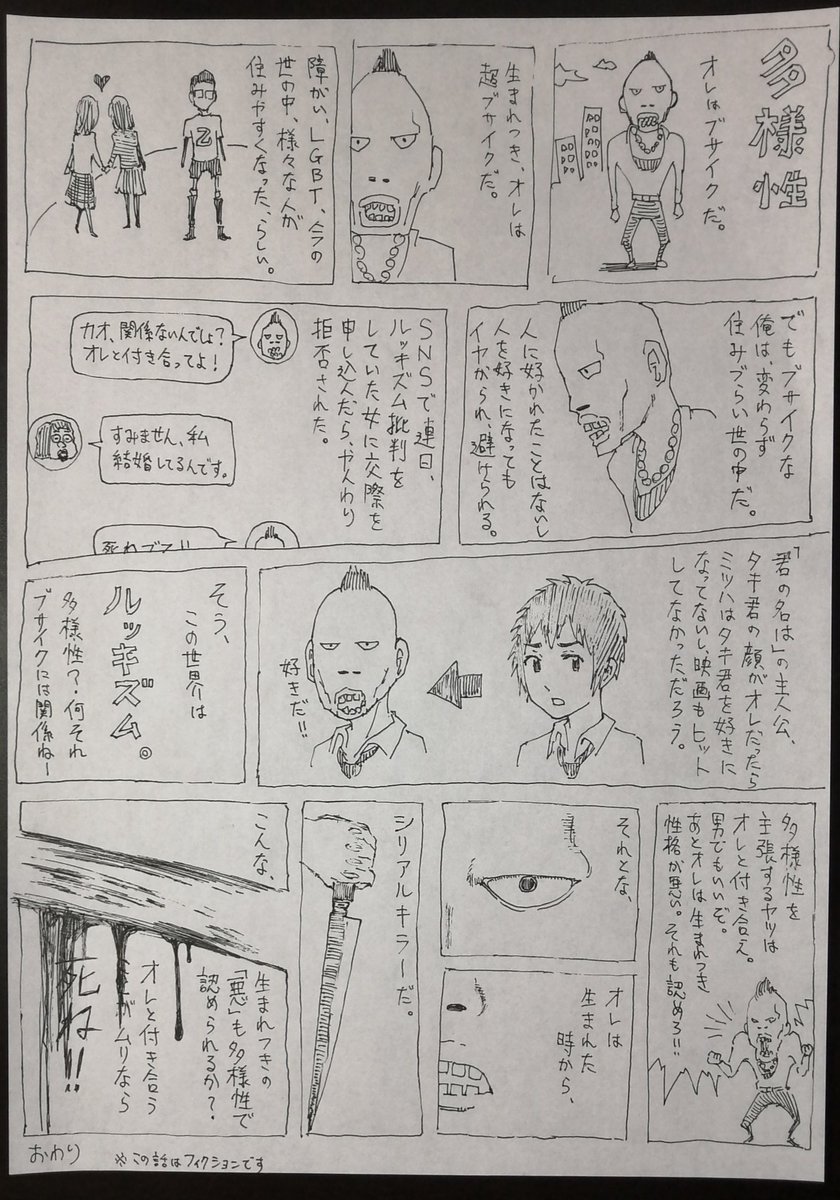 多様性
オレはブサイクだ。
生まれつき、オレは
超ブサイクだ。
障がい、LGBT、今の
世の中、様々な人が
住みやすくなった、らしい。
Z
でもブサイクな
俺は、変わらず
住みづらい世の中だ。
人に好かれたことはないし
人を好きになっても
イヤがられ、避けられる。
SNSで連日、
ルッキズム批判を
していた女に交際を
申し込んだら、やんわり
拒否された。
カオ、関係ないんでしょ?
オレと付き合ってよ!
すみません、私
結婚してるんです。
死ねブス!!
「君の名は」の主人公、
タキ君の顔がオレだったら
ミツハはタキ君を好きに
なってないし、映画もヒット
してなかっただろう。
好きだ!!
そう、
この世界は
ルッキズム。
多様性?何それ
ブサイクには関係ねー
多様性を
主張するヤツは
オレと付き合え。
男でもいいぞ。
あとオレは生まれつき
性格が悪い。それも認めろ!!
それとな、
オレは
生まれた
時から、
シリアルキラーだ。
こんな、
生まれつきの
「悪」も多様性で
認められるか?
オレと付き合う
のがムリなら
死ね!!
おわり
※この話はフィクションです